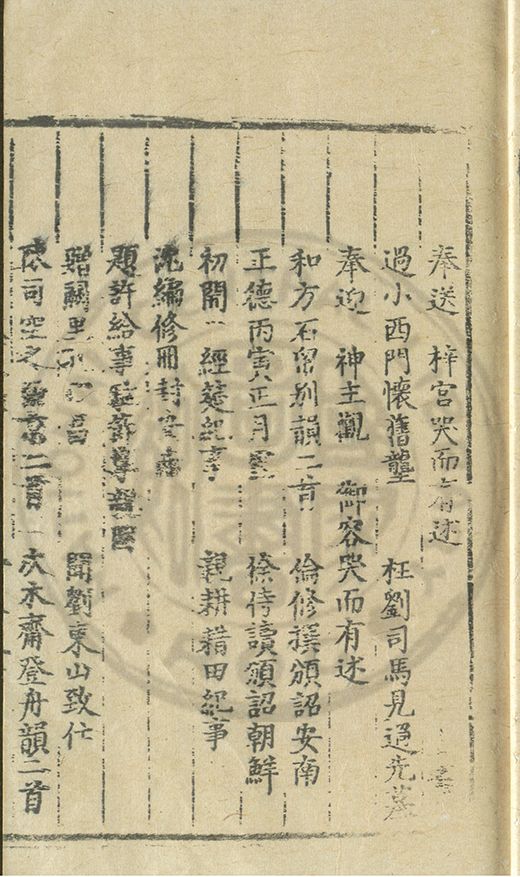 奉送 梓宮哭而有述
過小西門懷舊壟 枉劉司馬見過先墓
奉迎 神主觀 御容哭而有述
和方石留別韻二首 倫修撰頒詔安南
正德丙寅正月 徐侍讀頒詔朝鮮
初開 經筵紀事 親耕耤田紀事
沈編修冊封
題許給事
聞劉東山致仕
次司空 二首 次木齋登舟韻二首